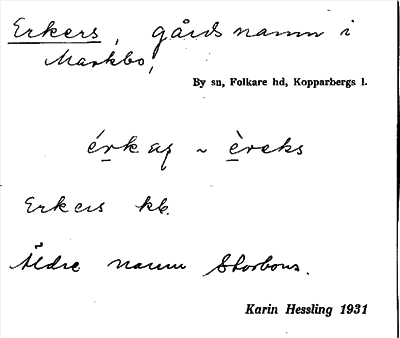 Erkers, gårdsnamn i
Markbo,
By sn, Folkare hd, Kopparbergs l.
érkaʂ ~ èrcks
Erkers kb.
Äldre namn Storbons.
Karin Hessling 1931